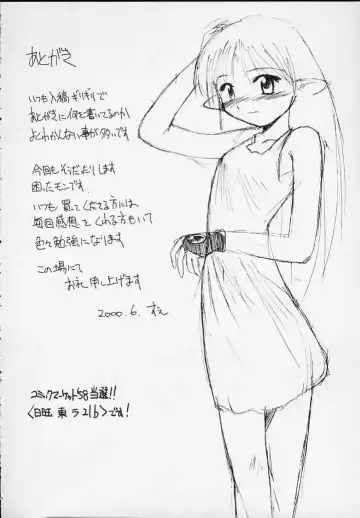 あとがき
いつも入稿ぎりぎりで
あとがきに何を書いてるのか
よくわかんない事が多いです
今回もそうだったりします
困ったモンです
いつも買ってくださる方には
毎回感想をくれる方もいて
色々勉強になります
この場にて
お礼申し上げます
2000.6.
コミックマーケット58当選!!
〈日曜 東 ラ21b〉です!